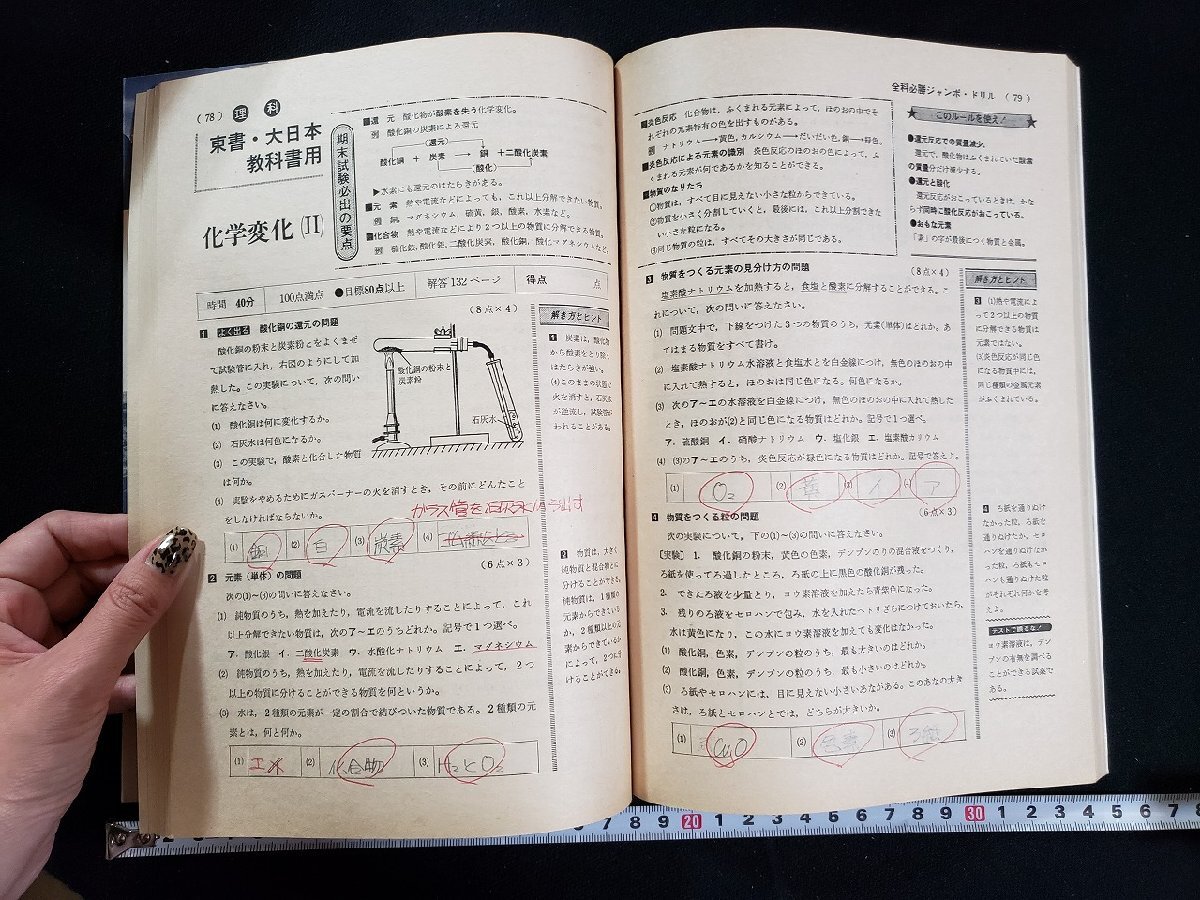 (78) 理 科
東書・大日本
教科書用
化学変化〔II〕
期末試験必出の要点
■還 元 酸化物が酸素を失う化学変化。
例 酸化銅の炭素による還元
(還元)
酸化銅 + 炭素 → 銅 +二酸化炭素
(酸化)
▶水素にも還元のはたらきがある。
■元 素 熱や電流などによっても,これ以上分解できない物質。
マグネシウム,硫黄,銀,酸素,水素など。
■化合物 熱や電流などにより2つ以上の物質に分解できる物質。
時間 40分 100点満点 ●目標80点以上 解答132ページ 得点 点
1 よく出る 酸化銅の還元の問題 (8点×4)
酸化銅の粉末と炭素粉とをよくまぜ
て試験管に入れ,右図のようにして加
熱した。この実験について,次の問い
に答えなさい。
(1) 酸化銅は何に変化するか。
(2) 石灰水は何色になるか。
(3) この実験で,酸素と化合した物質
は何か。
(4) 実験をやめるためにガスバーナーの火を消すとき,その前にどんなこと
をしなければならないか。
酸化銅の粉末と
炭素粉
石灰水
(1) 銅 (2) 白 (3) 炭素 (4)
2 元素(単体)の問題 (6点×3)
次の(1)~(3)の問いに答えなさい。
(1) 純物質のうち,熱を加えたり,電流を流したりすることによって,これ
以上分解できない物質は,次のア~エのうちどれか。記号で1つ選べ。
ア. 酸化銀 イ. 二酸化炭素 ウ. 水酸化ナトリウム エ. マグネシウム
(2) 純物質のうち,熱を加えたり,電流を流したりすることによって,2つ
以上の物質に分けることができる物質を何というか。
(3) 水は,2種類の元素が一定の割合で結びついた物質である。2種類の元
素とは,何と何か。
(1) エ (2) 化合物 (3) H₂とO₂
解き方とヒント
1 炭素は,酸化物
から酸素をとり除く
はたらきが強い。
(4)このままの状態で
火を消すと,石灰水
が逆流し,試験管が
われることがある。
2 物質は,大きく
純物質と混合物とに
分けることができる。
純物質は,1種類の
元素からできている
か,2種類以上の元
素からできているか
によって,2つに分
けることができる。
全科必勝ジャンボ・ドリル (79)
■炎色反応 化合物は,ふくまれる元素によって,ほのおの中でそ
れぞれの元素特有の色を出すものがある。
例 ナトリウム→黄色,カルシウム→だいだい色,銅→緑色。
■炎色反応による元素の識別 炎色反応のほのおの色によって,ふ
くまれる元素が何であるかを知ることができる。
■物質のなりたち
①物質は,すべて目に見えない小さな粒からできている。
②物質を小さく分割していくと,最後には,これ以上分割できな
い小さな粒になる。
③同じ物質の粒は,すべてその大きさが同じである。
このルールを使え!
●還元反応での質量減少。
還元で,酸化物はふくまれていた酸素
の質量分だけ減少する。
●還元と酸化
還元反応がおこっているときは,かな
らず同時に酸化反応がおこっている。
●おもな元素
「素」の字が最後につく物質と金属。
3 物質をつくる元素の見分け方の問題 (8点×4)
塩素酸ナトリウムを加熱すると,食塩と酸素に分解することができる。こ
れについて,次の問いに答えなさい。
(1) 問題文中で,下線をつけた3つの物質のうち,元素(単体)はどれか,あ
てはまる物質をすべて書け。
(2) 塩素酸ナトリウム水溶液と食塩水とを白金線につけ,無色のほのおの中
に入れて熱すると,ほのおは同じ色になる。何色になるか。
(3) 次のア~エの水溶液を白金線につけ,無色のほのおの中に入れて熱した
とき,ほのおが(2)と同じ色になる物質はどれか。記号で1つ選べ。
ア. 硫酸銅 イ. 硝酸ナトリウム ウ. 塩化銀 エ. 塩素酸カリウム
(4) (3)のア~エのうち,炎色反応が緑色になる物質はどれか。記号で答えよ。
(1) O₂ (2) 黄 (3) イ (4) ア
4 物質をつくる粒の問題 (6点×3)
次の実験について,下の(1)~(3)の問いに答えなさい。
〔実験〕 1. 酸化銅の粉末,黄色の色素,デンプンのりの混合液をつくり,
ろ紙を使ってろ過したところ,ろ紙の上に黒色の酸化銅が残った。
2. できたろ液を少量とり,ヨウ素溶液を加えたら青紫色になった。
3. 残りのろ液をセロハンで包み,水を入れたペトリざらにつけておいたら,
水は黄色になり,この水にヨウ素溶液を加えても変化はなかった。
(1) 酸化銅,色素,デンプンの粒のうち,最も大きいのはどれか。
(2) 酸化銅,色素,デンプンの粒のうち,最も小さいのはどれか。
(3) ろ紙やセロハンには,目に見えない小さいあながある。このあなの大き
さは,ろ紙とセロハンとでは,どちらが大きいか。
(1) CuO (2) 色素 (3) ろ紙
解き方とヒント
3 (1)熱や電流によ
って2つ以上の物質
に分解できる物質は
元素ではない。
(3)炎色反応が同じ色
になる物質中には,
同じ種類の金属元素
がふくまれている。
4 ろ紙を通りぬけ
なかった粒,ろ紙を
通りぬけたが,セロ
ハンを通りぬけなか
った粒,ろ紙もセロ
ハンも通りぬけた粒
がそれぞれ何かを考
えよ。
テストで誤るな!
ヨウ素溶液は,デン
プンの有無を調べる
ことができる試薬で
ある。
6 7 8 9 20 1 2 3 4 5 6 7 8 9 30 1 2 3 4 5 6 7 8